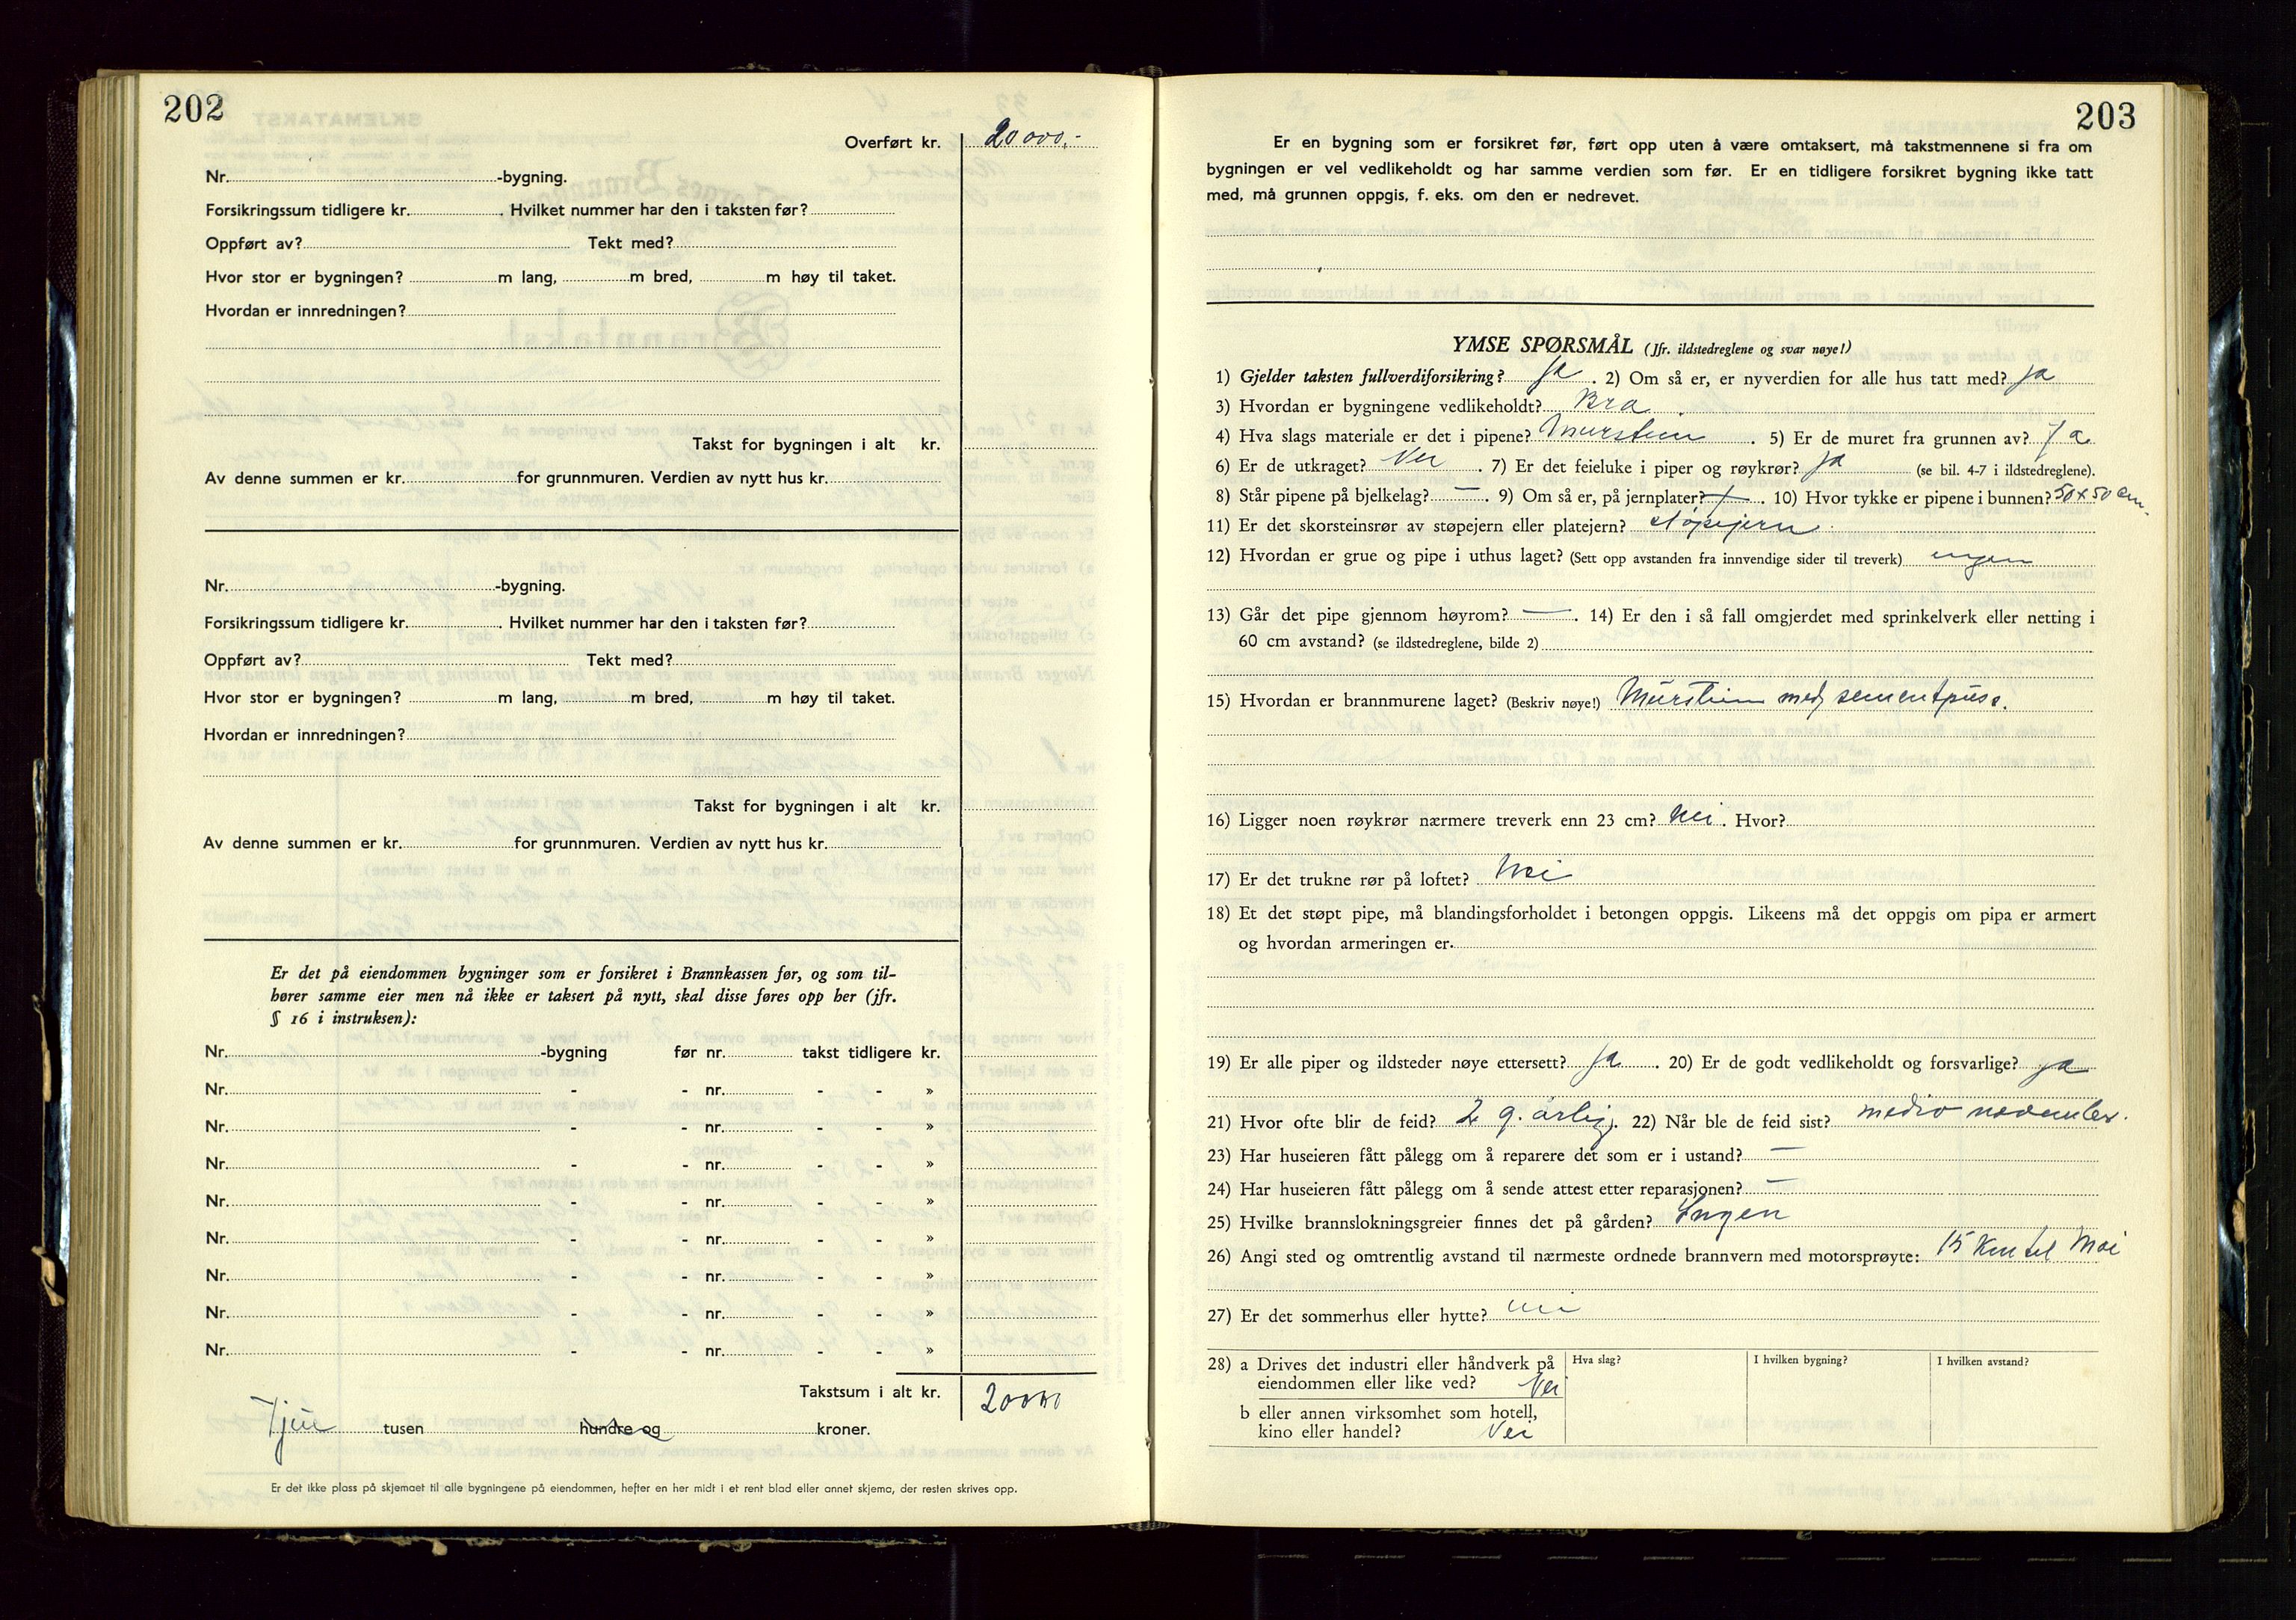 202
Overført kr. 20000,-
Nr. -bygning.
Forsikringssum tidligere kr. . Hvilket nummer har den i taksten før?
Oppført av? Tekt med?
Hvor stor er bygningen? m lang, m bred, m høy til taket.
Hvordan er innredningen?
Takst for bygningen i alt kr.
Av denne summen er kr. for grunnmuren. Verdien av nytt hus kr.
Nr. -bygning.
Forsikringssum tidligere kr. . Hvilket nummer har den i taksten før?
Oppført av? Tekt med?
Hvor stor er bygningen? m lang, m bred, m høy til taket.
Hvordan er innredningen?
Takst for bygningen i alt kr.
Av denne summen er kr. for grunnmuren. Verdien av nytt hus kr.
Er det på eiendommen bygninger som er forsikret i Brannkassen før, og som til-
hører samme eier men nå ikke er taksert på nytt, skal disse føres opp her (jfr.
§ 16 i instruksen):
Nr. -bygning før nr. takst tidligere kr.
Nr. - - nr. - - »
Nr. - - nr. - - »
Nr. - - nr. - - »
Nr. - - nr. - - »
Nr. - - nr. - - »
Nr. - - nr. - - »
Nr. - - nr. - - »
Nr. - - nr. - - »
Takstsum i alt kr. 20000
Tjue tusen hundre og kroner.
Er det ikke plass på skjemaet til alle bygningene på eiendommen, hefter en her midt i et rent blad eller annet skjema, der resten skrives opp.
203
Er en bygning som er forsikret før, ført opp uten å være omtaksert, må takstmennene si fra om
bygningen er vel vedlikeholdt og har samme verdien som før. Er en tidligere forsikret bygning ikke tatt
med, må grunnen oppgis, f. eks. om den er nedrevet.
YMSE SPØRSMÅL (Jfr. ildstedreglene og svar nøye!)
1) Gjelder taksten fullverdiforsikring? ja . 2) Om så er, er nyverdien for alle hus tatt med? ja
3) Hvordan er bygningene vedlikeholdt? Bra .
4) Hva slags materiale er det i pipene? Murstein . 5) Er de muret fra grunnen av? Ja
6) Er de utkraget? Nei . 7) Er det feieluke i piper og røykrør? ja (se bil. 4-7 i ildstedreglene).
8) Står pipene på bjelkelag? — . 9) Om så er, på jernplater? — . 10) Hvor tykke er pipene i bunnen? 50x50 cm.
11) Er det skorsteinsrør av støpejern eller platejern? støpejern
12) Hvordan er grue og pipe i uthus laget? (Sett opp avstanden fra innvendige sider til treverk) ingen
13) Går det pipe gjennom høyrom? — . 14) Er den i så fall omgjerdet med sprinkelverk eller netting i
60 cm avstand? (se ildstedreglene, bilde 2)
15) Hvordan er brannmurene laget? (Beskriv nøye!) Murstein med sementpuss.
16) Ligger noen røykrør nærmere treverk enn 23 cm? Nei . Hvor?
17) Er det trukne rør på loftet? Nei
18) Et det støpt pipe, må blandingsforholdet i betongen oppgis. Likeens må det oppgis om pipa er armert
og hvordan armeringen er.
19) Er alle piper og ildsteder nøye ettersett? ja . 20) Er de godt vedlikeholdt og forsvarlige? ja
21) Hvor ofte blir de feid? 2 g. årlig . 22) Når ble de feid sist? medio november.
23) Har huseieren fått pålegg om å reparere det som er i ustand? —
24) Har huseieren fått pålegg om å sende attest etter reparasjonen? —
25) Hvilke brannslokningsgreier finnes det på gården? Ingen
26) Angi sted og omtrentlig avstand til nærmeste ordnede brannvern med motorsprøyte: 15 Km til Moi
27) Er det sommerhus eller hytte? nei
28) a Drives det industri eller håndverk på Hva slag? I hvilken bygning? I hvilken avstand?
eiendommen eller like ved? Nei
b eller annen virksomhet som hotell,
kino eller handel? Nei